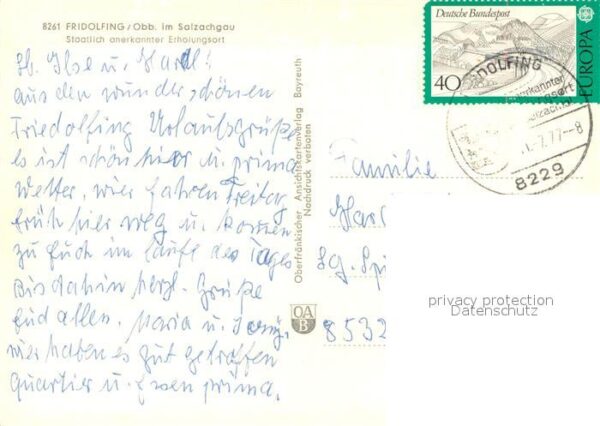 8261 FRIDOLFING / Obb. im Salzachgau
Staatlich anerkannter Erholungsort
Lb. Ilse u. Karl!
aus den wunderschönen
Friedolfing Urlaubsgrüße
es ist schön hier u. prima
Wetter, wier fahren Freitag
früh hier weg u. komen
zu Euch im laufe des Tages
Bis dahin herzl. Grüße
Eud allen. Maria u.
wier haben es gut getroffen
Quartier u. Essen prima.
Oberfränkischer Ansichtskartenverlag Bayreuth
Nachdruck verboten
OA
B
Deutsche Bundespost
40
EUROPA
FRIDOLFING
anerkannter
7.77-8
8229
Familie
Karl
8532
privacy protection
Datenschutz